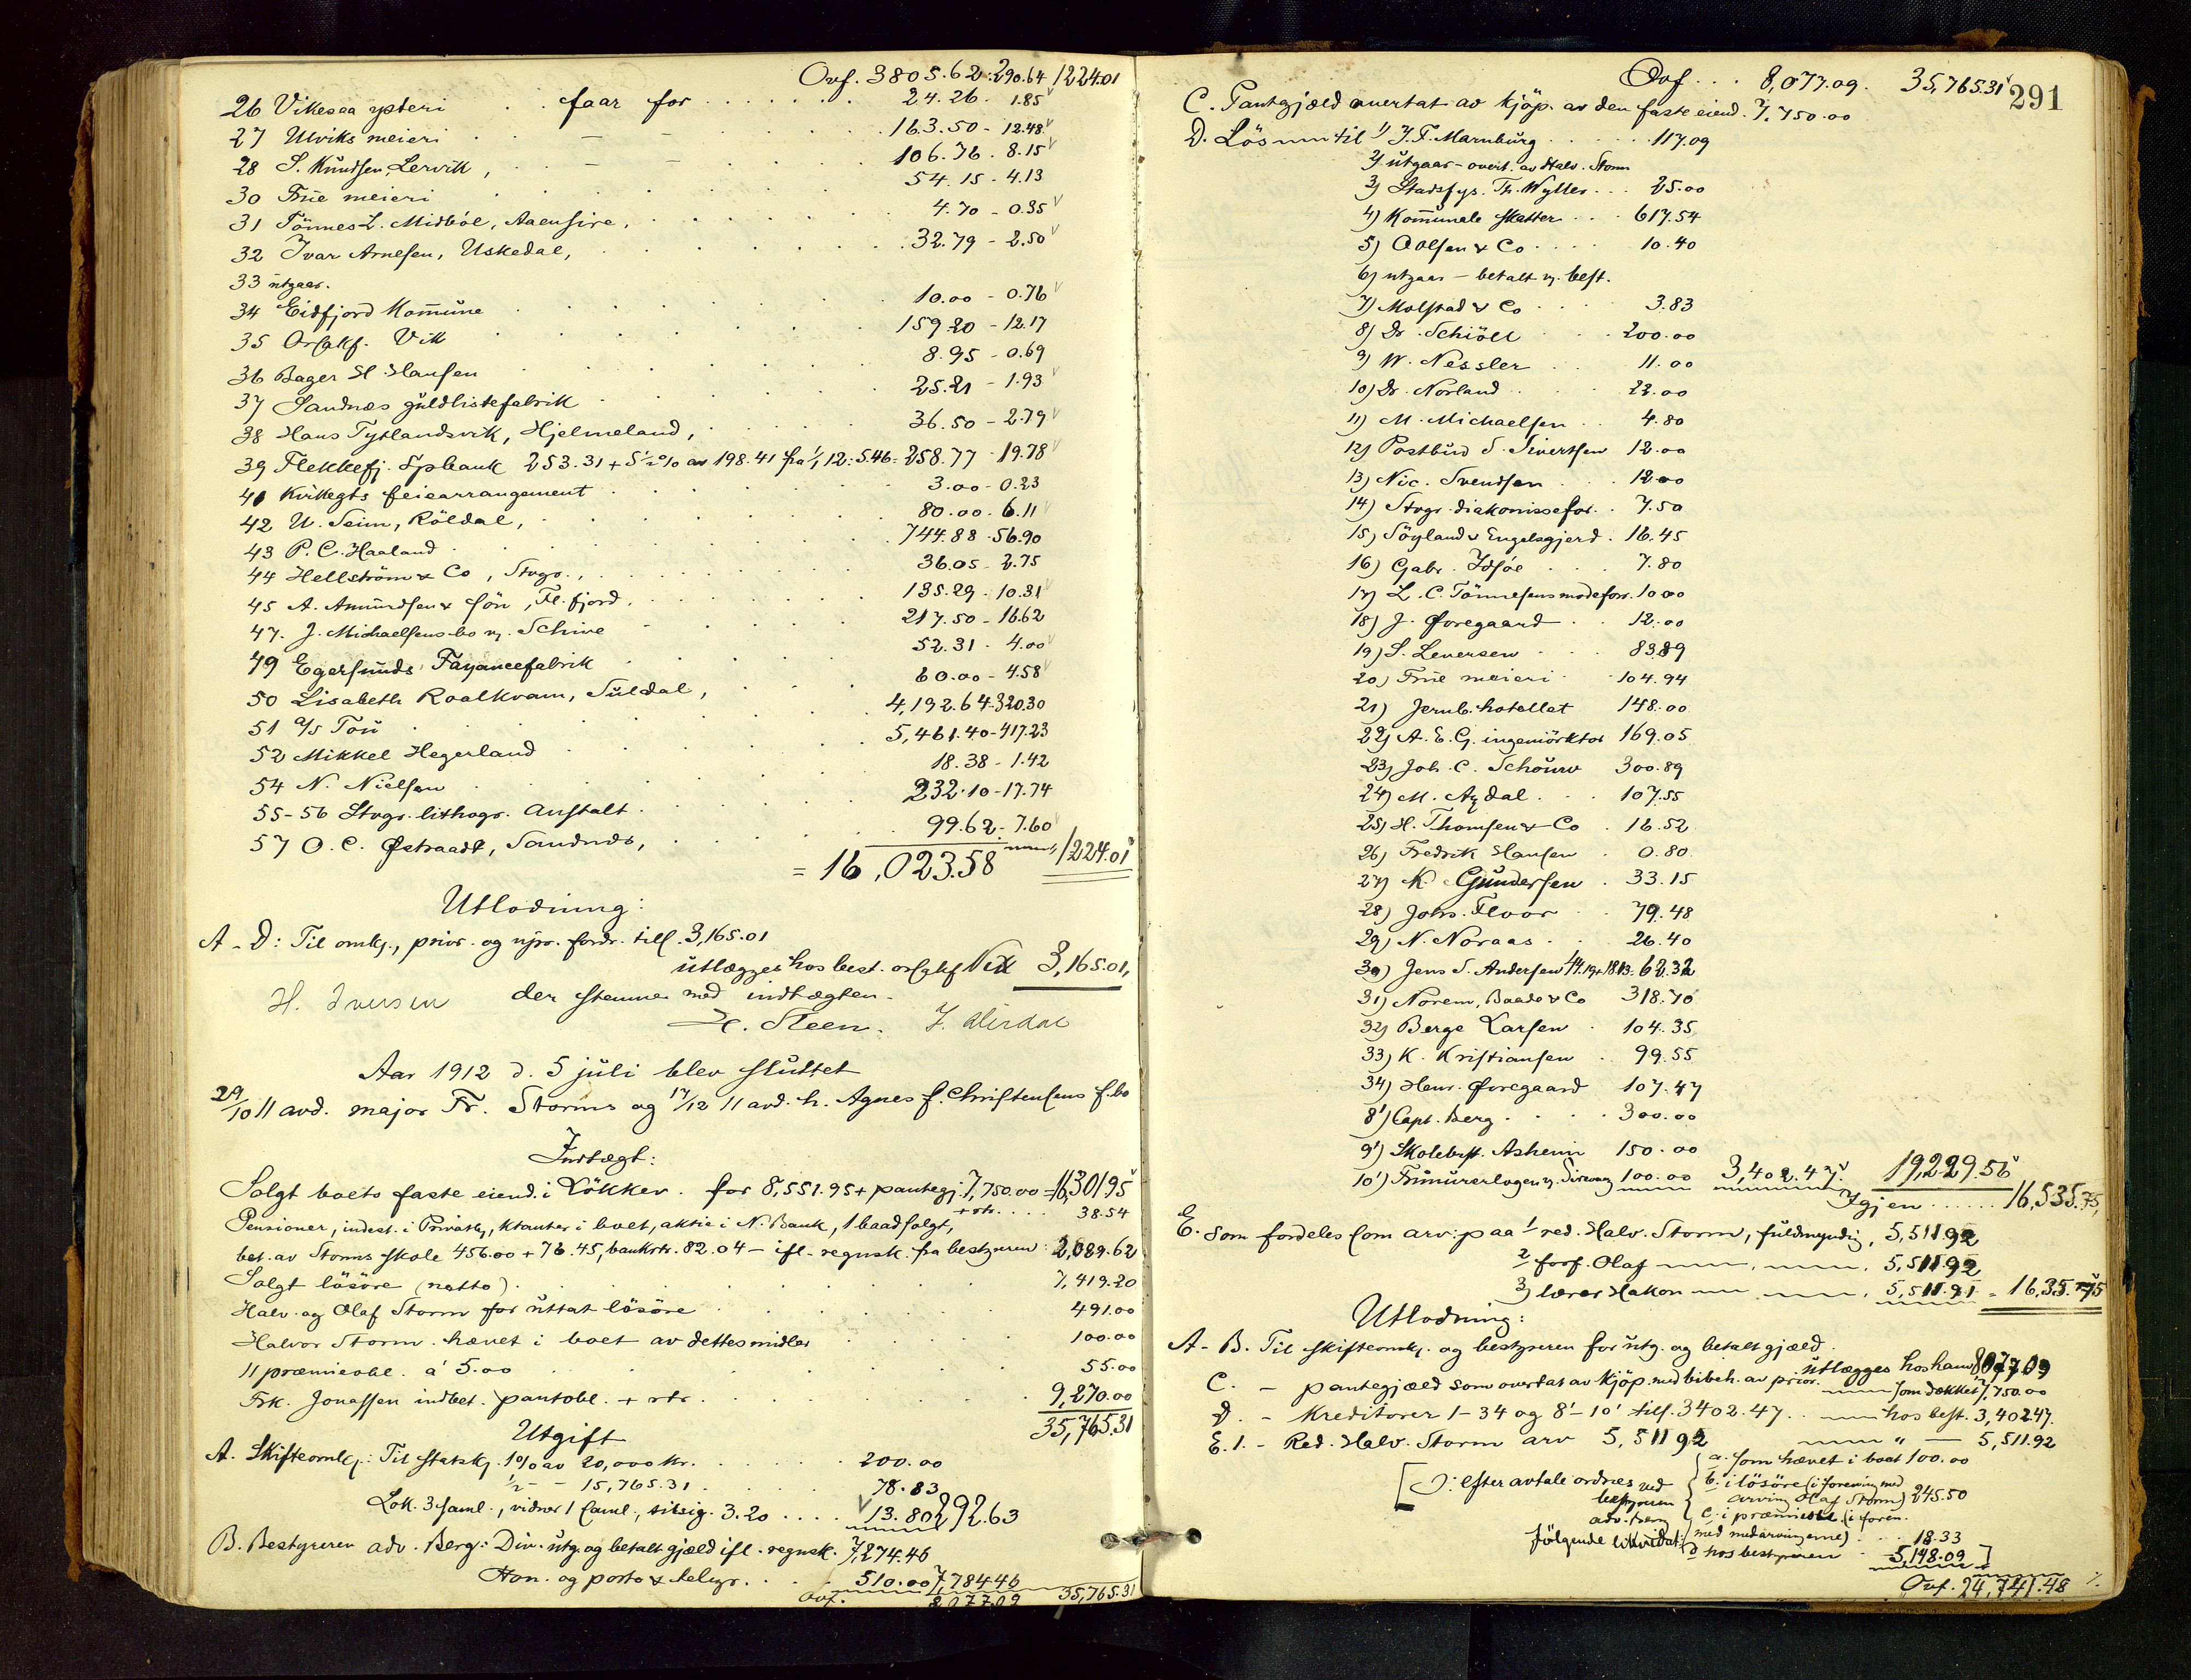 Ovf. 3805.62 : 290.64 1224.01
26 Vikesaa ysteri . . faar for . . . . . . 24.26. 1.85
27 Ulviks meieri . . — . . . 163.50 - 12.48
28 S. Knudsen, Lervik, . . — — . . 106.76 . 8.15
30 Frue meieri . . . . . 54.15 - 4.13
31 Tönnes L. Midböe, Aaensire, . . . . 4.70 - 0.35
32 Ivar Arnesen, Uskedal, . . . . 32.79 - 2.50
33 utgaar.
34 Eidfjord Kommune . . . . 10.00 - 0.76
35 Orfakf. Vik . . . . 159.20 - 12.17
36 Bager H. Hansen . . . . 8.95 - 0.69
37 Sandnes guldlistefabrik . . . . 25.21 - 1.93
38 Hans Tytlandsvik, Hjelmeland, . . . . 36.50 - 2.79
39 Flekkefj. Spbank 253.31 + 5½% av 198.41 fra 1/1 12: 5.46 = 258.77 19.78
41 Kirkegts feiearrangement . . . . 3.00 - 0.23
42 U. Seim, Röldal, . . . . 80.00 . 6.11
43 P. C. Haaland . . . . 744.88 . 56.90
44 Hellström & Co, Stvgr., . . . . 36.05 - 2.75
45 A. Amundsen & Sön, Fl.fjord. . . . . 135.29 . 10.31
47. J. Michaelsens bo v. Schive . . . 217.50 - 16.62
49 Egersunds Fayancefabrik . . . . 52.31 . 4.00
50 Lisabeth Roalkvam, Suldal, . . . 60.00 - 4.58
51 A/S Tou . . . . 4,192.64 . 320.30
52 Mikkel Hegerland . . . . 5,461.40 - 417.23
54 N. Nielsen . . . . 18.38 - 1.42
55-56 Stvgr. lithogr. Anstalt . . . . 232.10 - 17.74
57 O. C. Østraadt, Sandnes, . . . . 99.62 - 7.60
= 16,023.58 1224.01
Utlodning:
A - D: Til omk., prior. og upr. fordr. tils. 3,165.01
utlægges hos best. orfakf Vik 3,165.01,
der stemmer med indtægten.
H. Iversen H. Steen.
Aar 1912 d. 5 juli blev sluttet
29/10 11 avd. major Fr. Storms og 17/12 11 avd. h. Agnes f. Christensens f.bo
Indtægt:
Solgt boets faste eiend. i Lökkev. for 8,551.95 + pantegj. 7,750.00 = 16,301.95
Pensioner, indest. i Privatb., Ktanter i boet, aktie i N. Bank, 1 baad solgt, + rtr. . . . 38.54
bet. av Storms skole 456.00 + 76.45, bankrtr. 82.04 — ifl. regnsk. fra bestyreren: 2,089.62
Solgt lösöre (netto) . . . . 7,419.20
Halv. og Olaf Storm for uttat lösöre . . . . 491.00
Halvor Storm hævet i boet av dettes midler . . . . 100.00
11 præmieobl. à 5.00 . . . . 55.00
Frk. Jonassen indbet. pantobl. + rtr. . . . . 9,270.00
35,765.31
Utgift
A. Skifteomk.: Til statsk. 1% av 20,000 kr. . . . . 200.00
½ - - 15,765.31 . . . . 78.83
Lok. 3 saml., vidner 1 saml., tilsig. 3.20 . . . . 13.80 292.63
B. Bestyreren adv. Berg: Div. utg. og betalt gjæld ifl. regnsk. 7,274.46
Hon. og porto & telegr. . . . 510.00 7,784.46
Ovf. 8,077.09 35,765.31
Ovf. . . 8,077.09. 35,765.31 291
C. Pantgjæld overtat av kjöp. av den faste eiend. 7,750.00
D. Lösunn til 1) J. F. Marnburg . . . . 117.09
2) utgaar - overt. av Halv. Storm
3) Stadsfys. Th. Wyller . . . 25.00
4) Kommunale skatter . . . 617.54
5) Oolsen & Co . . . . 10.40
6) utgaar — betalt v. best.
7) Molstad & Co . . . 3.83
8) Dr. Schiöll . . 200.00
9) W. Nessler . . 11.00
10) Dr. Norland . . 22.00
11) M. Michaelsen . . 4.80
12) Postbud S. Sivertsen 12.00
13) Nic. Svendsen . . 12.00
14) Stvgr. diakonissefor. . 7.50
15) Söyland & Engelsgjerd . 16.45
16) Gabr. Idsöe . . . 7.80
17) L. C. Tönnesens modeforr. 10.00
18) J. Øvregaard . . 12.00
19) S. Leversen . . . 83.89
20) Frue meieri . . 104.94
21) Jernb. hotellet 148.00
22) A. E. G. ingeniörktor 169.05
23) Joh. C. Schouw 300.89
24) M. Aydal . . . 107.55
25) H. Thomsen & Co . 16.52
26) Fredrik Hansen . 0.80
27) K. Gundersen . 33.15
28) Johs. Floor . . 79.48
29) N. Noraas . . 26.40
30) Jens S. Andersen 44.19 + 18.13 = 62.32
31) Norem, Baade & Co 318.70
32) Berge Larsen . 104.35
33) K. Kristiansen . . 99.55
34) Henr. Øvregaard 107.47
8') Capt. Berg . . . . 300.00
9') Skolebest. Asheim 150.00
10') Frimurerlogen v. Sirevaag 100.00 3,402.47. 19,229.56
Igjen . . . . . 16,535.75,
E. som fordeles som arv: paa 1) red. Halv. Storm, fuldmyndig, 5,511.92
2) forf. Olaf — , — , 5,511.92
3) lærer Hakon — , — , 5,511.91 = 16,535.75
Utlodning:
A - B. Til skifteomk. og bestyreren for utg. og betalt gjæld . utlægges hos ham 8,077.09
C. - pantegjæld som overtat av kjöp. med bibeh. av prior. — som dækket 7,750.00
D. - Kreditorer 1-34 og 8'-10' tils. 3402.47 . . — hos best. 3,402.47.
E. 1. - Red. Halv. Storm arv 5,511.92 — " — 5,511.92
[ɔ: efter avtale ordnes ved bestyreren adv. Berg følgende likvidat:
a. som hævet i boet 100.00
b. i lösöre (i forening med arving Olaf Storm) 245.50
c. i præmieobl. (i foren. med medarvingerne) . . 18.33
d hos bestyreren . 5,148.09]
Ovf. 24,741.48 ./.